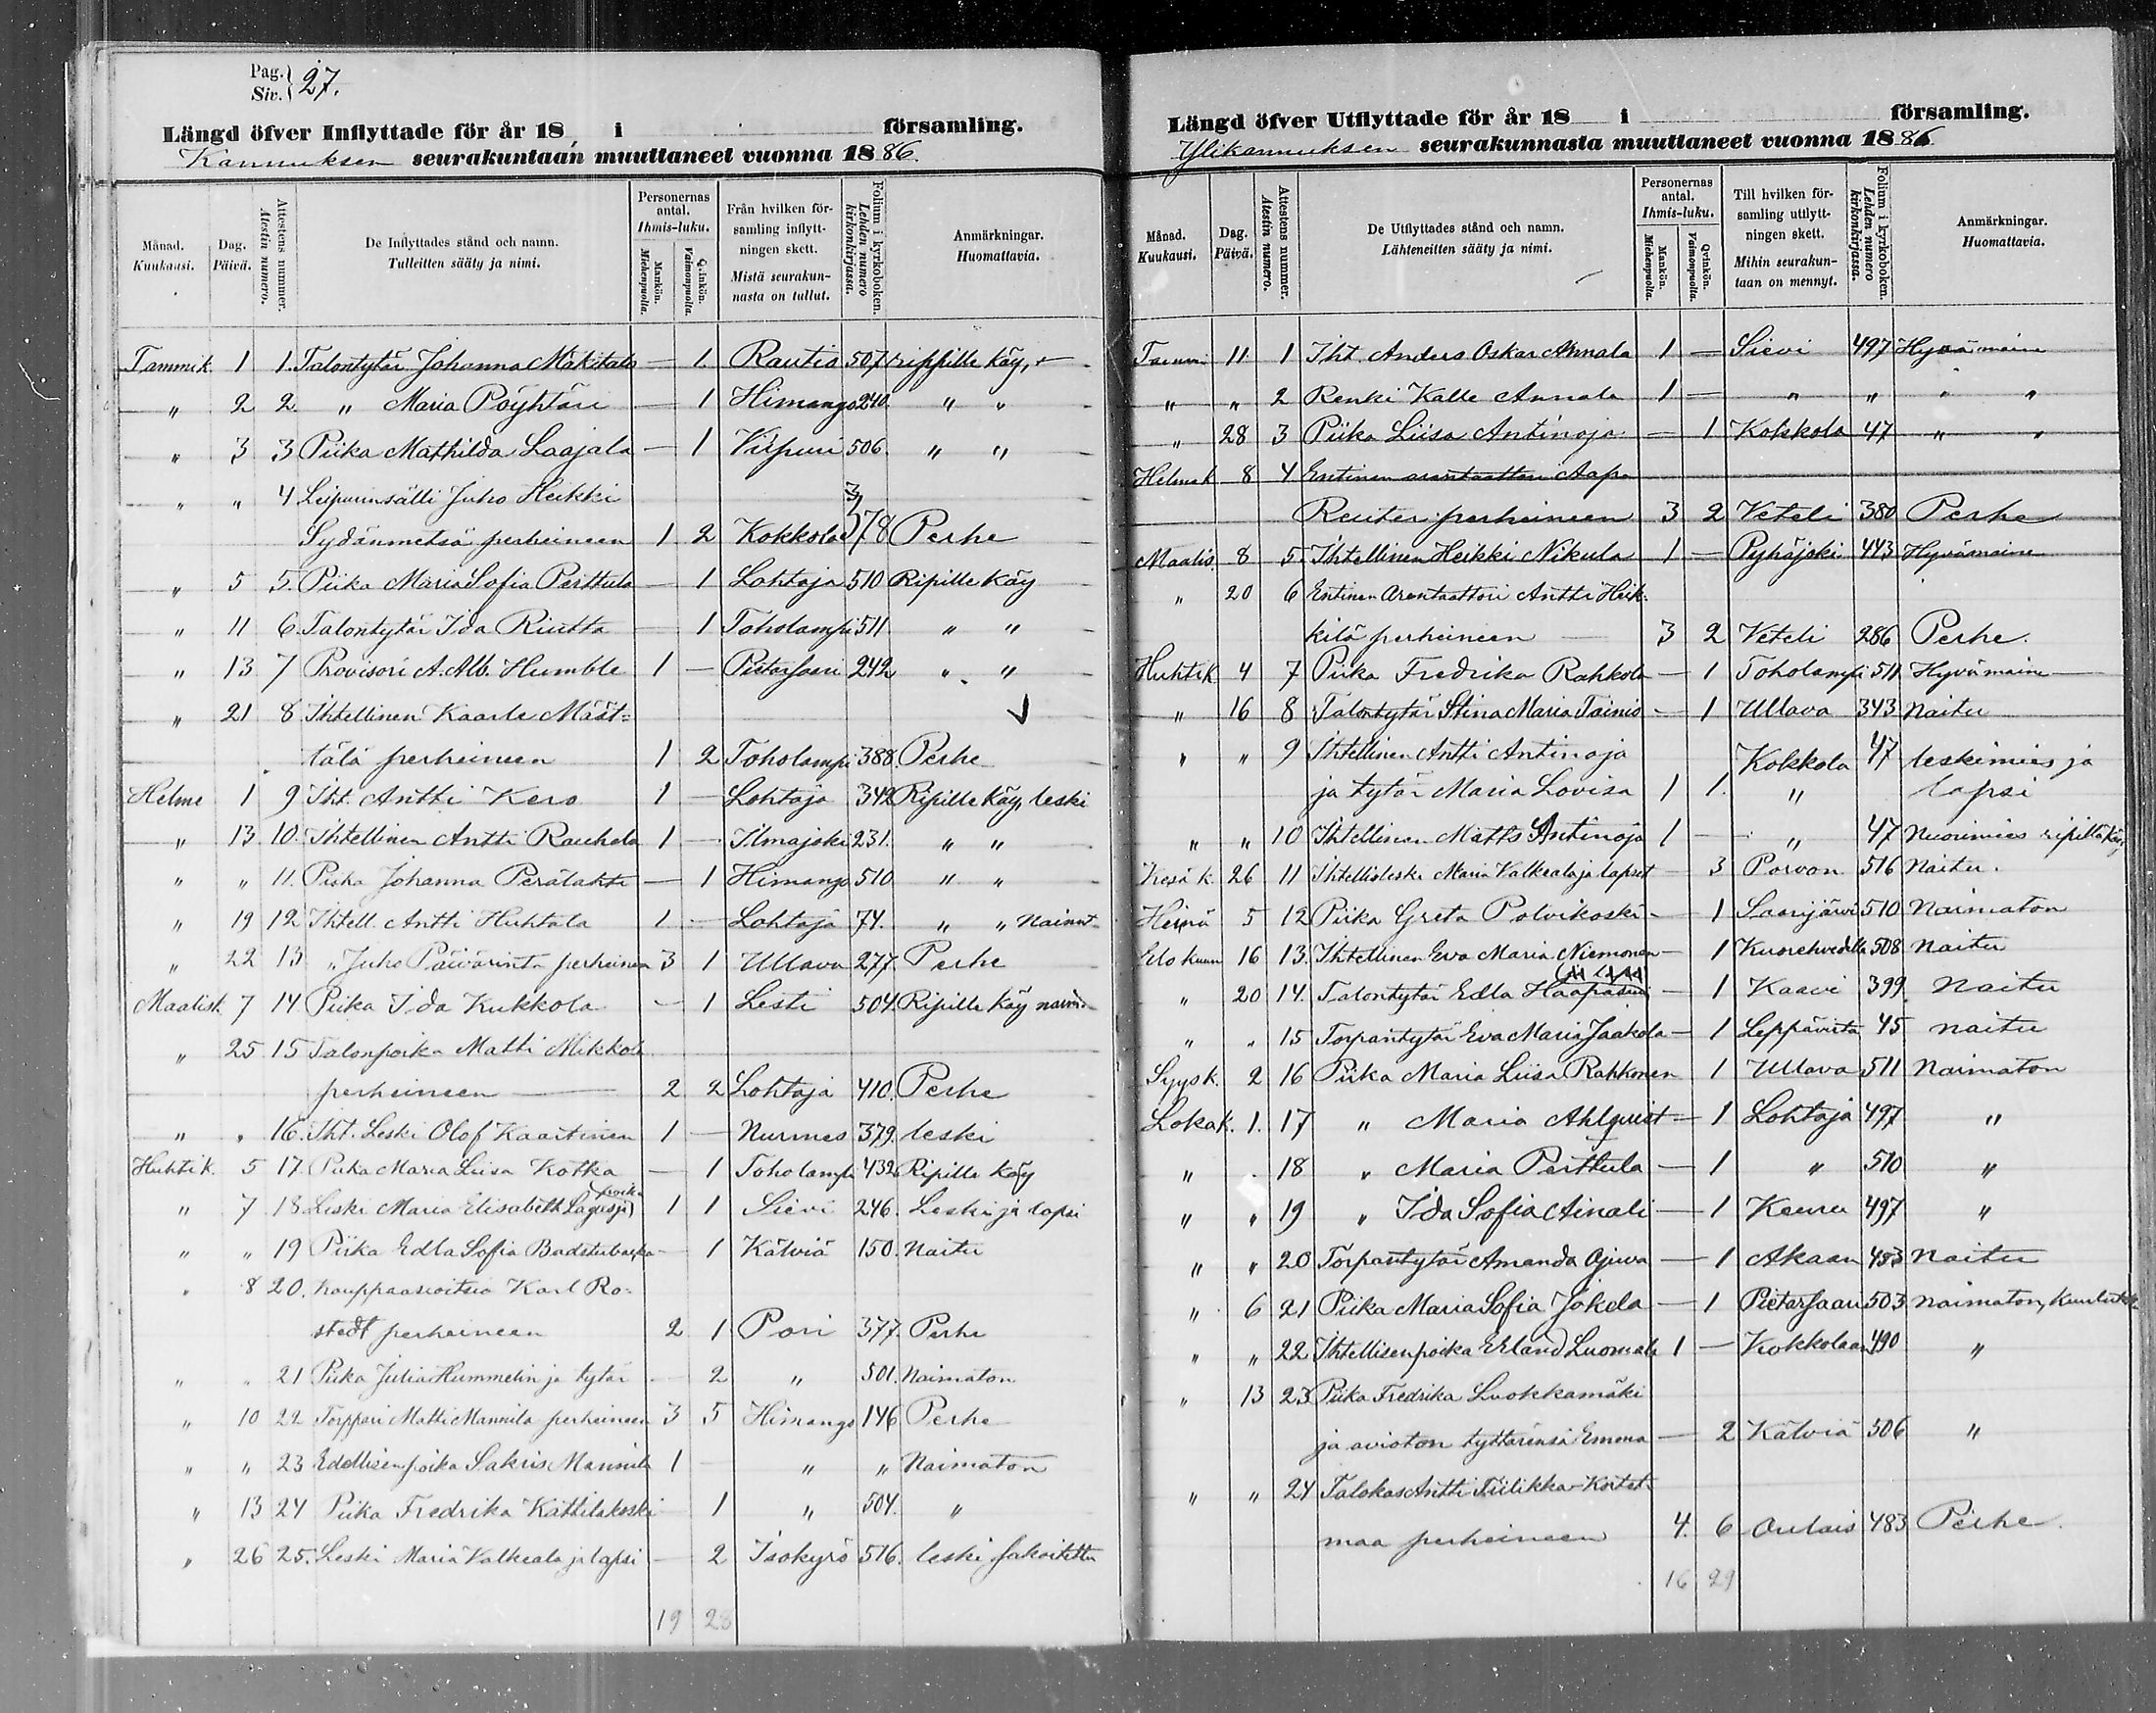 Pag. } 27.
Siv. }
Längd öfver Inflyttade för år 18 i församling.
Kannuksen seurakuntaan muuttaneet vuonna 1886.
Månad. Kuukausi. Dag. Päivä. Attestens nummer. Atestin numero. De Inflyttades stånd och namn. Tulleitten sääty ja nimi. Personernas antal. Ihmis-luku. Mankön. Miehenpuolia. Qvinkön. Vaimonpuolia. Från hvilken församling inflyttningen skett. Mistä seurakunnasta on tullut. Folium i kyrkoboken. Lehden numero kirkonkirjassa. Anmärkningar. Huomattavia.
Tammik. 1 1. Talontytär Johanna Mäkitalo — 1. Rautio 507 rippille käy,
" 2 2. " Maria Pöyhtäri — 1 Himango 240. " "
" 3 3 Piika Mathilda Laajala — 1 Viipuri 506. " "
" " 4 Leipurinsälli Juho Heikki
Sydänmetsä perheineen 1 2 Kokkola 378 Perhe
" 5 5. Piika Maria Sofia Perttula — 1 Lohtaja 510 Ripille käy
" 11 6. Talontytär Ida Riutta — 1 Toholampi 511 " "
" 13 7 Provisori A. Alb. Humble 1 — Pietarsaari 242 " "
" 21 8 Ihtellinen Kaarle Määt-
tälä perheineen 1 2 Toholampi 388. Perhe
Helme 1 9 Iht. Antti Kero 1 — Lohtaja 342 Ripille käy, leski
" 13. 10. Ihtellinen Antti Rauhala 1 — Ilmajoki 231. " "
" " 11. Piika Johanna Perälahti — 1 Himango 510 " "
" 19 12 Ihtell. Antti Huhtala 1 — Lohtaja 74. " " Nainut
" 22 13 " Juho Päivärinta perheineen 3 1 Ullava 277. Perhe
Maalisk. 7 14 Piika Ida Kukkola — 1 Lesti 504. Ripille käy
" 25 15 Talonpoika Matti Mikkola
perheineen — 2 2 Lohtaja 410. Perhe
" " 16. Iht. Leski Olof Kaartinen 1 — Nurmes 379. leski
Huhtik. 5 17 Piika Maria Liisa Kotka — 1 Toholampi 432 Ripille käy
" 7 18 Leski Maria Elisabeth Lagus ja poika 1 1 Sievi 246. Leski ja lapsi
" " 19 Piika Edla Sofia Badstubacka — 1 Kälviä 150. Naitu
" 8 20. Kauppaasioitsia Karl Ro-
stedt perheineen 2 1 Pori 377. Perhe
" " 21 Piika Julia Hummelin ja tytär — 2 " 501. Naimaton
" 10 22 Torppari Matti Mannila perheineen 3 5 Himango 146 Perhe
" " 23 Edellisen poika Sakris Mannila 1 — " " Naimaton
" 13 24 Piika Fredrika Kattilakoski 1 " 504. "
" 26 25. Leski Maria Valkeala ja lapsi — 2 Isokyrö 516. leski
19 28
Längd öfver Utflyttade för år 18 i församling.
Ylikannuksen seurakunnasta muuttaneet vuonna 1886
Månad. Kuukausi. Dag. Päivä. Attestens nummer. Atestin numero. De Utflyttades stånd och namn. Lähteneitten sääty ja nimi. Personernas antal. Ihmis-luku. Mankön. Miehenpuolia. Qvinkön. Vaimonpuolia. Till hvilken församling utflyttningen skett. Mihin seurakuntaan on mennyt. Folium i kyrkoboken. Lehden numero kirkonkirjassa. Anmärkningar. Huomattavia.
Tammi 11 1 Iht. Anders Oskar Annala 1 — Sievi 497 Hyvämaine
" " 2 Renki Kalle Annala 1 — " " " "
" 28 3 Piika Liisa Antinoja — 1 Kokkola 47 " "
Helmik 8 4 Entinen arentaattori Aapo
Reuter perheineen 3 2 Veteli 380 Perhe
Maalis. 8 5 Ihtellinen Heikki Nikula 1 — Pyhäjoki 443 Hyvämaine
" 20 6 Entinen Arentaattori Antti Heik-
kilä perheineen — 3 2 Veteli 286 Perhe.
Huhtik 4 7 Piika Fredrika Rahkola — 1 Toholampi 511 Hyvämaine
" 16 8 Talontytär Stina Maria Tainio — 1 Ullava 343 Naitu
" " 9 Ihtellinen Antti Antinoja Kokkola 47 leskimies ja
ja tytär Maria Lovisa 1 1. " lapsi
" " 10 Ihtellinen Matts Antinoja 1 — " 47 Nuorimies ripillä käy
Kesä k. 26 11 Ihtellisleski Maria Valkeala ja lapset 3 Porvoo 516 Naitu.
Heinä 5 12 Piika Greta Polvikoski — 1 Saarijärvi 510 Naimaton
Elokuun 16 13. Ihtellinen Eva Maria Niemonen — 1 508 Naitu
" 20 14. Talontytär Edla Haapasaari — 1 Kaavi 399. Naitu
" " 15 Torpantytär Eva Maria Jaakola — 1 Leppävirta 45 naitu
Syysk. 2 16 Piika Maria Liisa Rahkonen 1 Ullava 511 Naimaton
Lokak. 1. 17 " Maria Ahlqvist — 1 Lohtaja 497 "
" 18 " Maria Perttula — 1 " 510 "
" " 19 " Ida Sofia Ainali — 1 Keuru 497 "
" " 20 Torpantytär Amanda Ojuva — 1 Akaan 453 Naitu
" 6 21 Piika Maria Sofia Jokela — 1 Pietarsaari 503 naimaton,
" " 22 Ihtellisenpoika Erland Luomala 1 — Kokkolaan 490 "
" 13 23 Piika Fredrika Luokkamäki
ja avioton tyttärensä Emma — 2 Kälviä 506 "
" " 24 Talokas Antti Tiilikka-Kortet-
maa perheineen 4. 6 Oulais 483 Perhe.
16 29